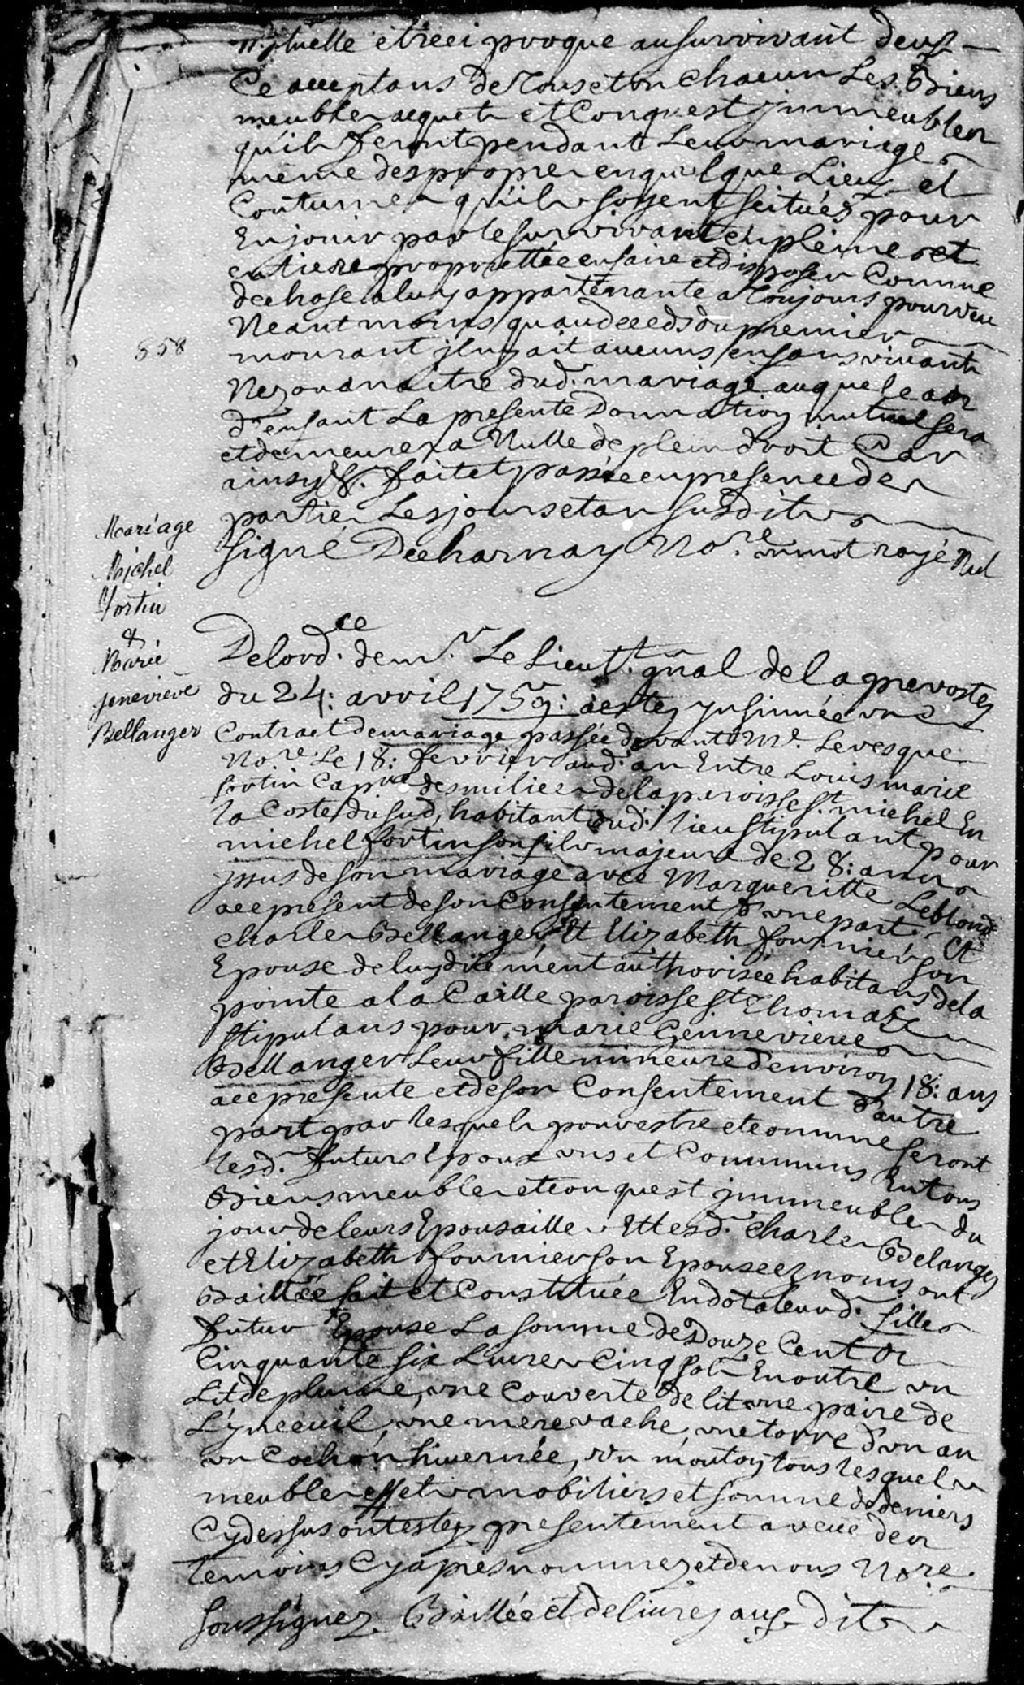 mutuelle et reciproque au survivant deux
Ce acceptans de Tous et un chacun Les Biens
meubles acquets et Conquest jmmeubles
quils feront pendant Leur mariage
même des propres en quelque Lieux et
Coutumes qu'ils soyent scitués pour
En jouir par le survivant en pleine et
entiere proprietté en faire et disposer Comme
de chose a luy appartenante a Toujours pourveu
Neantmoins quau deceds du premier
mourant jl ny ait aucuns enfans vivants
Nez ou a naitre dud. mariage auquel cas
d'enfant La presente Donnation mutuel sera
et demeurera Nulle de plein droit Car
ainsy &. fait et passée en presence des
parties Les jours et an susdits
signé Decharnay No.re un mot rayé Nul
858
Mariage
Michel
Fortin
&
Marie
Genevieve
Bellanger
De lord.ce de m.r Le Lieut.t gñal de la prevostez
du 24: avril 1759: a estez jnsinnée un
Contract de mariage passée devant M.e Levesque
No.re Le 18: fevrier aud. an Entre Louis marie
fortin Capne des milices de la peroisse St. michel En
la Coste du Sud, habitant dud. lieu stipulant pour
michel fortin son fils majeur de 28: ans
jssus de son mariage avec Margueritte Leblond
a ce present de son Consentement d'une part Et
charles Bellanger Et Elizabeth fournier son
Epouse de luy ditement authorisée habitans de la
pointe a la Caille paroisse St Thomas
stipulans pour marie Gennevieve
Bellanger Leur fille mineure d'environ 18: ans
a ce presente et de son Consentement d'autre
part par lesquels pour estre et comme seront
lesd. futurs Epoux uns et Communs En tous
Biens meubles et conquest jmmeubles du
jour de leurs Epousailles Et lesd. Charles Belanger
et Elizabeth fournier son Epouse ez noms ont
Baillée fait et Constituée En dot a leurd. fille
futur Epouse La somme de Douze Cent
Cinquante six Livres Cinq sols En outre un
Lit de plume, une Couverte de lit une paire de
Lynceuil, une mere vache, une torre d'un an
un Cochon hivernée, un mouton tous lesquels
meubles effets mobiliers et somme de deniers
Cy dessus ont estez presentement a veue des
temoins Cy aprés nommez et de nous No.re
soussignez Baillée et delivrez aux dits